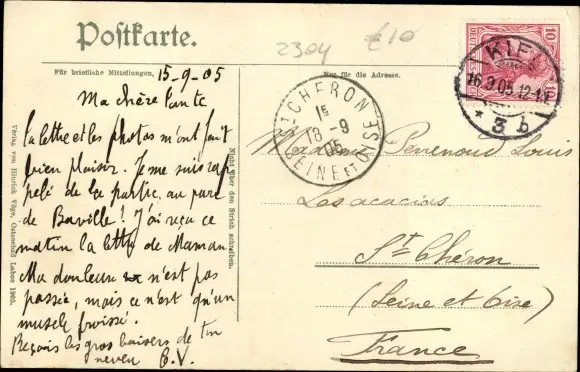 Postkarte.
2304
£10
Für briefliche Mitteilungen,
Nur für die Adresse.
15-9-05
Ma chère tante
la lettre et les photos m'ont fait
bien plaisir. Je me suis rap
pelé de la partie au parc
de Baville! J'ai reçu ce
matin la lettre de Maman
Ma douleur n'est pas
passée, mais ce n'est qu'un
muscle froissé.
Reçois les gros baisers de ton
neveu E.V.
Verlag von Hinrich Vöge, Ostseebad Laboe 1905.
Nicht über den Strich schreiben.
ST CHERON
1E
18-9
05
SEINE ET OISE
10
10
KIEL
16.9.05.12-1N
* 3 b
Madame Perrenoud Louis
Les acacias
St Chéron
(Seine et Oise)
France